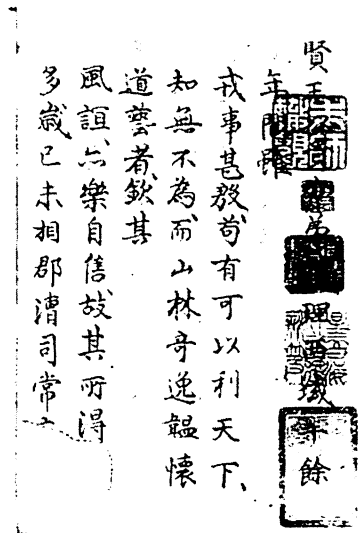 賢王 弟 理 年餘
年間雖
戎事甚殷苟有可以利天下、
知無不為而山林奇逸韞懷
道藝者欽其
風誼亦樂自售故其所得
多歲己未相郡漕司常